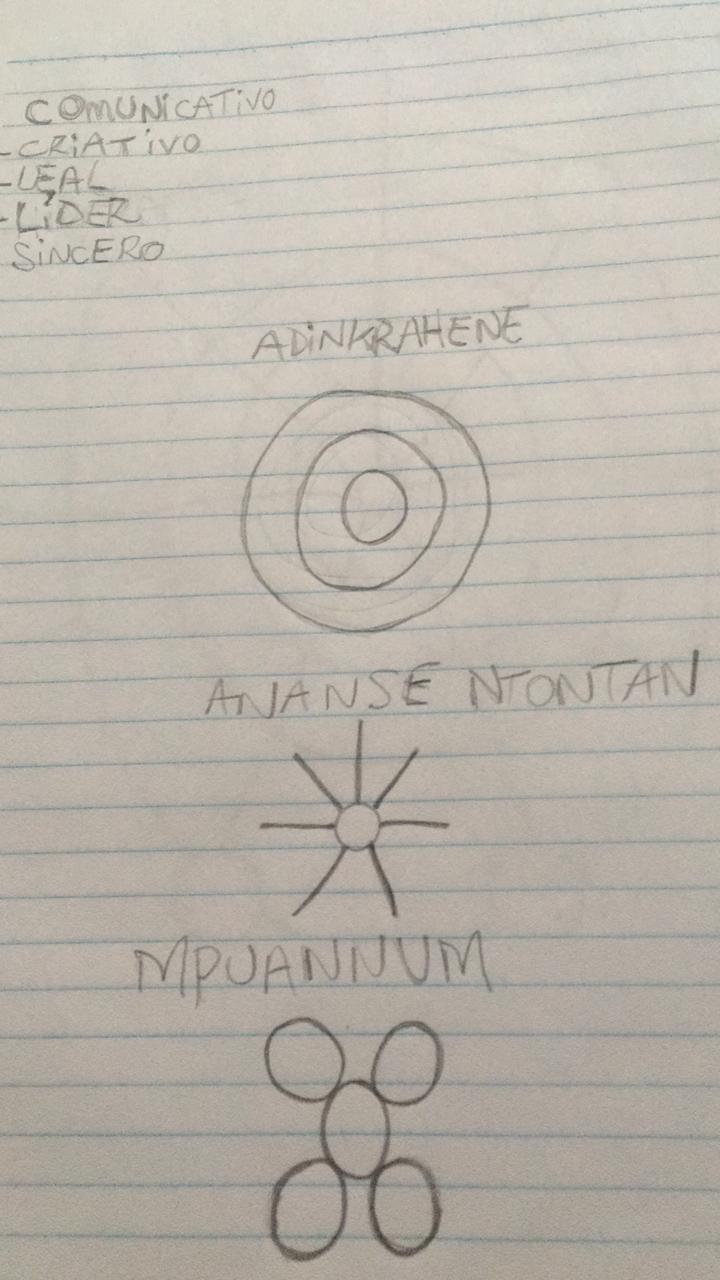 COMUNiCATiVO
-CRiATiVO
-LEAL
-LÍDER
SiNCERO
ADiNKRAHENE
ANANSE NTONTAN
MPUANNUM